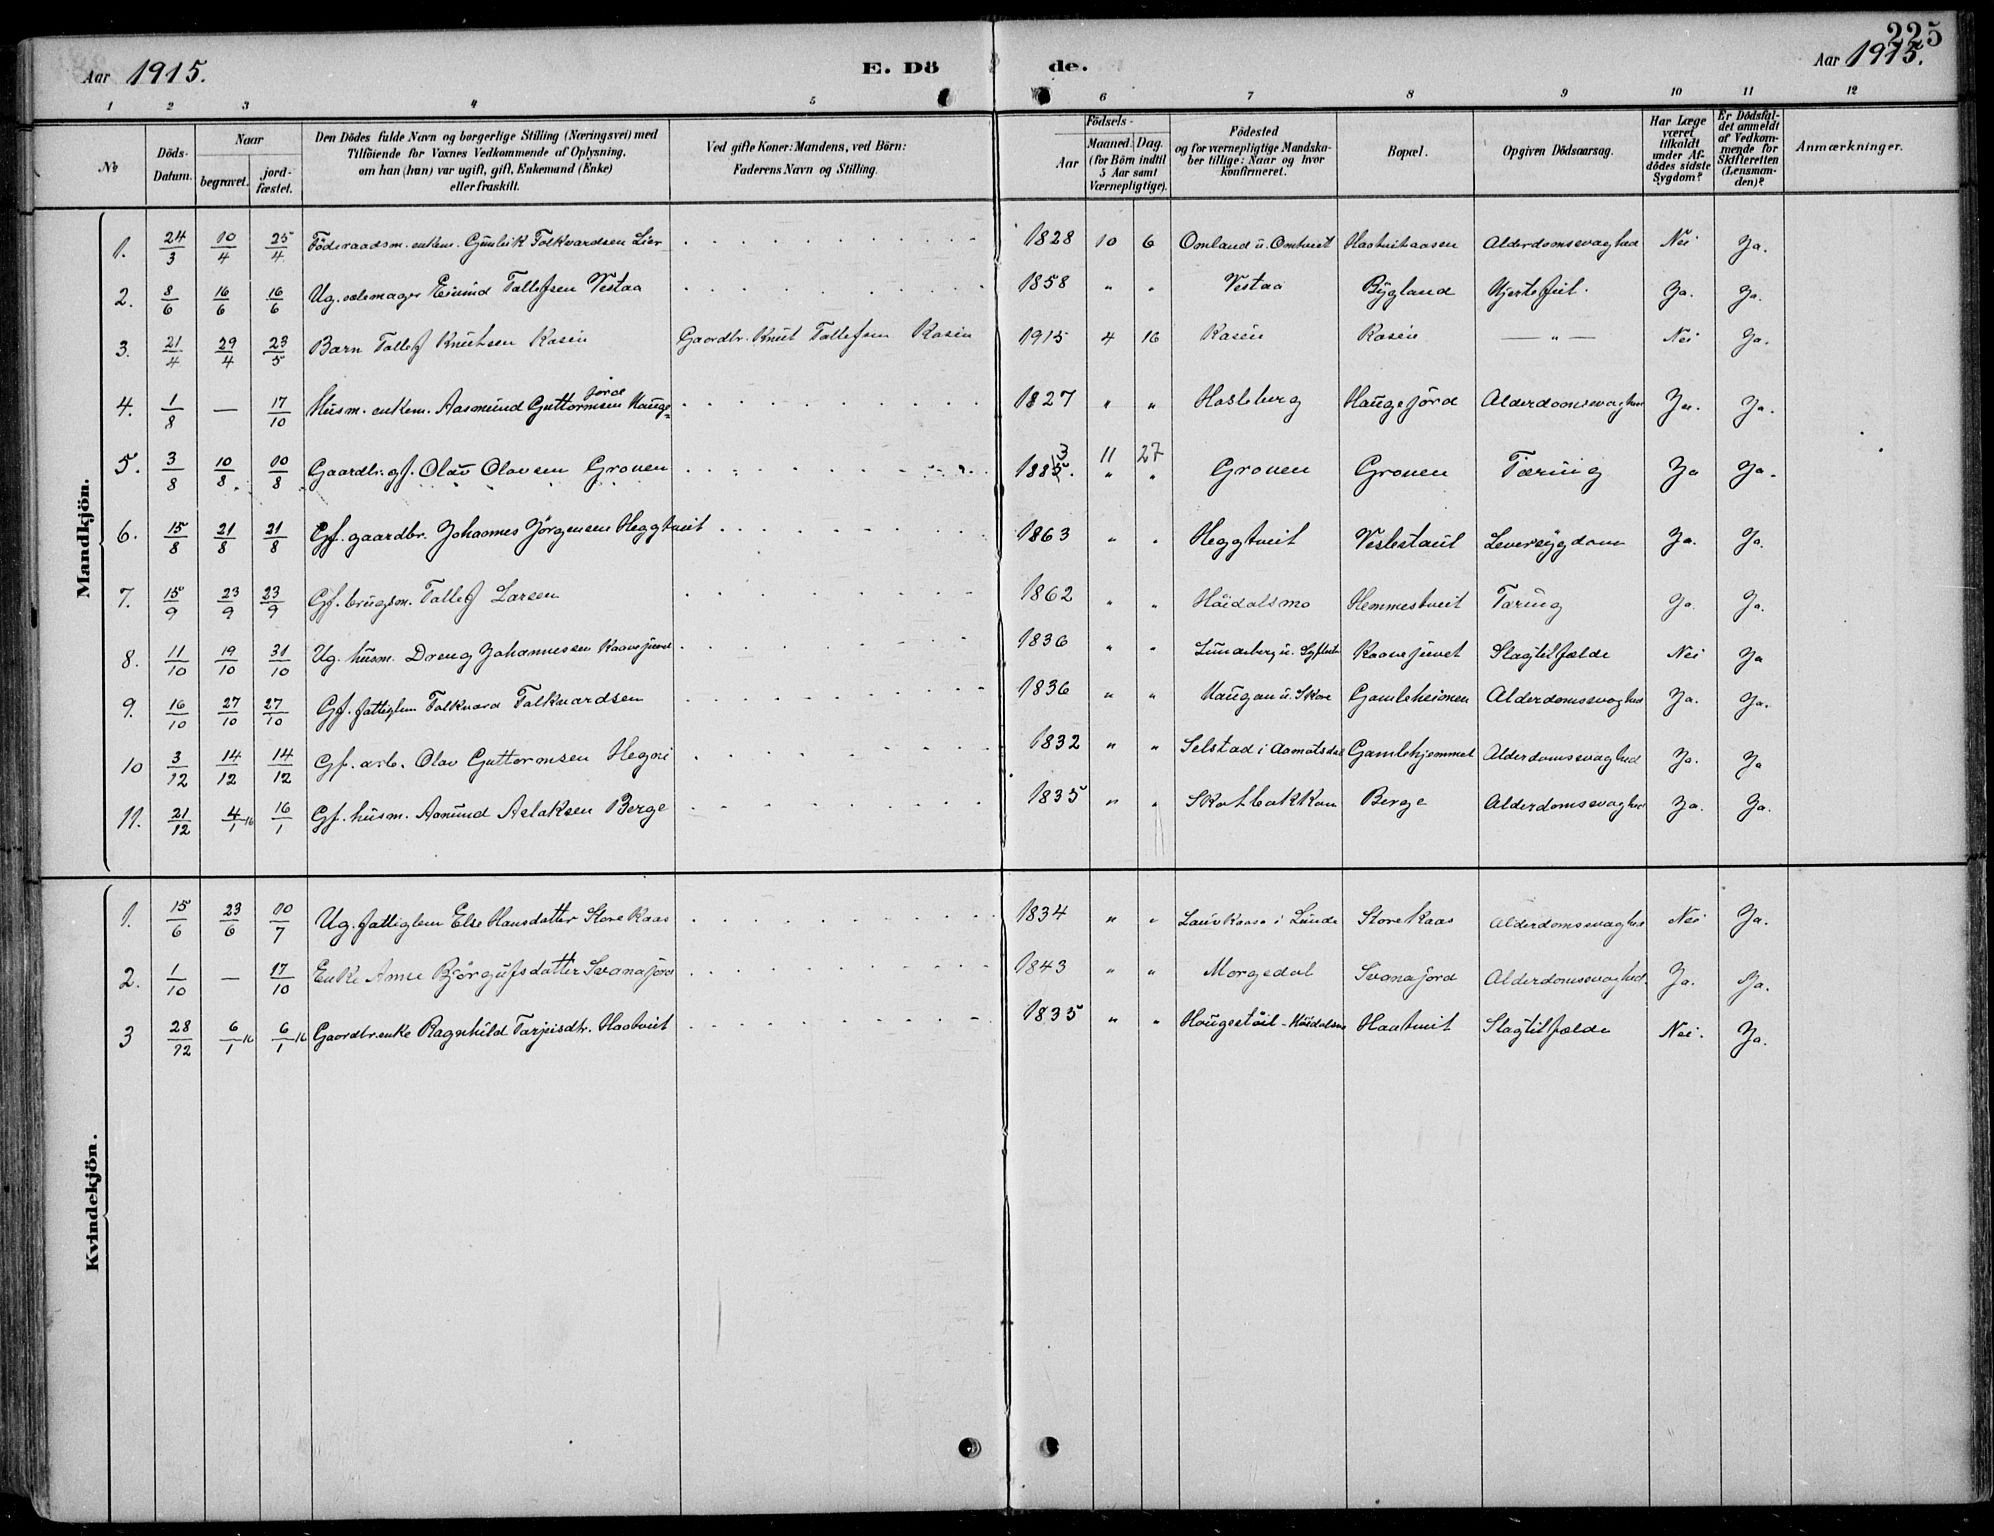 225
Aar 1915. E. Dö de. Aar 1915.
1 2 3 4 5 6 7 8 9 10 11 12
No
Döds-Datum.
Naar
begravet.
jord-fæstet.
Den Dödes fulde Navn og borgerlige Stilling (Næringsvei) med
Tilföiende for Voxnes Vedkommende af Oplysning,
om han (hun) var ugift, gift, Enkemand (Enke)
eller fraskilt.
Ved gifte Koner: Mandens, ved Börn:
Faderens Navn og Stilling.
Födsels-
Aar
Maaned. Dag.
(for Börn indtil
5 Aar samt
Værnepligtige).
Födested
og for værnepligtige Mandska-
ber tillige: Naar og hvor
konfirmeret.
Bopæl.
Opgiven Dödsaarsag.
Har Læge
været
tilkaldt
under Af-
dödes sidste
Sygdom?
Er Dödsfal-
det anmeldt
af Vedkom-
mende for
Skifteretten
(Lensman-
den)?
Anmærkninger.
Mandkjön.
1. 24/3 10/4 25/4 Föderaadsm. enkem. Gunleik Folkvardsen Lier 1828 10 6 Omland u. Omtveit Haatveitaasen Alderdomssvaghed Nei Ja.
2. 8/6 16/6 16/6 Ug. salemager Eivind Tallefsen Vestaa 1858 " " Vestaa Bygland Hjertefeil. Ja. Ja.
3. 21/4 29/4 23/5 Barn Tallef Knutsen Kasin Gaardbr. Knut Tallefsen Kasin 1915 4 16 Kasin Kasin — " — Nei Ja.
4. 1/8 — 17/10 Husm. enkem. Aasmund Guttormsen Hauge-jord 1827 " " Hasleberg Haugejörd Alderdomssvaghed Ja. Ja.
5. 3/8 10/8 10/8 Gaardbr. gf. Olav Olavsen Groven 1885. 3 11 27 " " Groven Groven Tæring Ja Ja.
6. 15/8 21/8 21/8 Gf. gaardbr. Johannes Jörgensen Heggtveit 1863 " " Heggtveit Veslestaul Leversygdom Ja. Ja.
7. 15/9 23/9 23/9 Gf. brugsm. Tallef Larsen 1862 " " Höidalsmo Hemmestveit Tæring Ja. Ja.
8. 11/10 19/10 31/10 Ug. husm. Dreng Johannessen Raanejuvet 1836 " " Lundeberg u. Raanejuvet Slagtilfælde Nei Ja
9. 16/10 27/10 27/10 Gf. fattiglem Folkvard Folkvardsen 1836 " " Haugan u. Skore Gamleheimen Alderdomssvaghed Ja. Ja.
10 3/12 14/12 14/12 Gf. arb. Olav Guttormsen Hegni 1832 " " Selstad i Aamotsdal Gamlehjemmet Alderdomssvaghed Ja. Ja
11. 21/12 4/1 16 16/1 Gf. husm. Aamund Aslaksen Berge 1835 " " Skotbakkan Berge Alderdomssvaghed Ja. Ja.
Kvindekjön.
1. 15/6 23/6 10/7 Ug. fattiglem Else Hansdatter Store Kaas 1834 " " i Lunde Store Kaas Alderdomssvaghed Nei Ja.
2. 1/10 — 17/10 Enke Anne Björgufsdatter Svanajord 1843 " " Morgedal Svanajord Alderdomssvaghed. Ja. Ja.
3 28/12 6/1 16 6/1 16 Gaardbr.enke Ragnhild Tarjeisdtr. Haatveit 1835 " " Haugestöil - Höidalsmo Haatveit Slagtilfælde Nei. Ja.